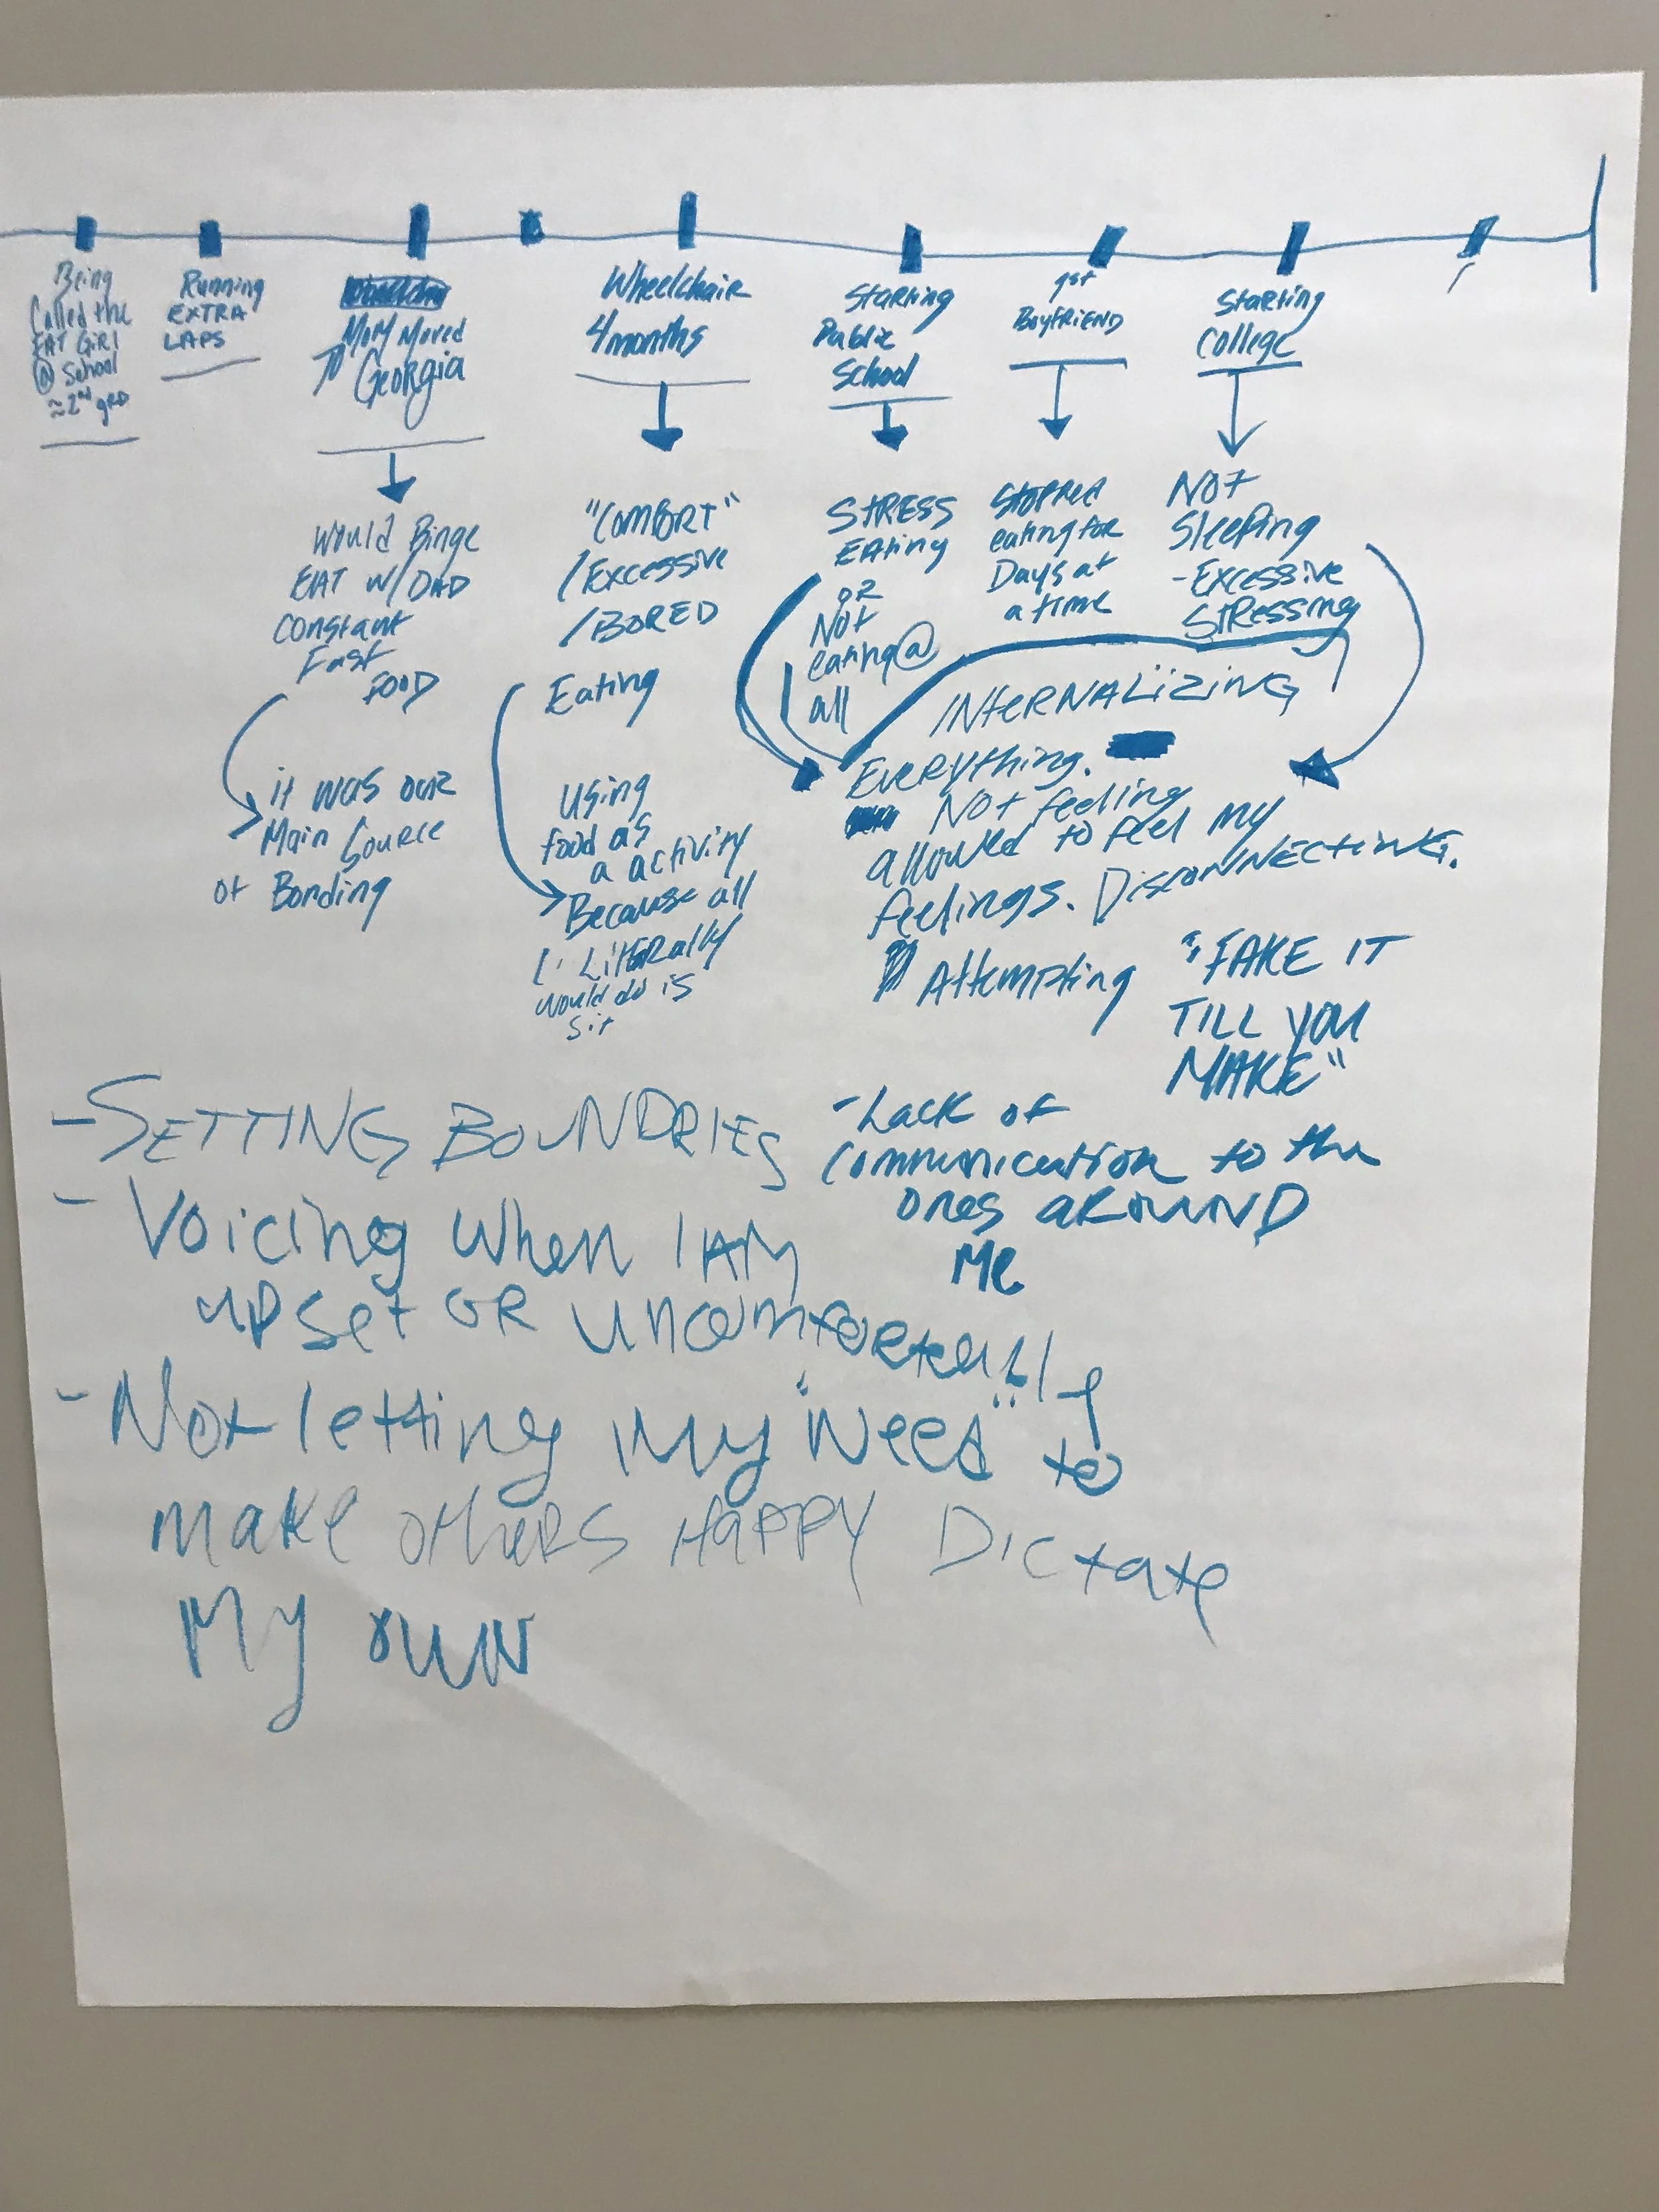 Being
Called the
FAT GiRl
@ School
≈2nd grd
Running
EXTRA
LAPS
Mom Moved
To Georgia
Wheelchair
4months
Starting
Public
School
got
BoyfRiEND
Starting
College
Would Binge
EAT w/ DAD
Constant
Fast
FOOD
it was our
Main Source
of Bonding
"COMFORT"
/Excessive
/BORED
Eating
Using
food as
a activity
Because all
I Literally
would do is
sit
StRESS
EAting
or
Not
eating@
all
Stopped
eating for
Days at
a time
Not
Sleeping
-Excessive
StRessing
INteRNALiziNG
EveRything.
Not feeling
allowed to feel my
feelings. DiscONNECtiNG.
Attempting "FAKE IT
TILL YOU
MAKE"
-Lack of
Communication to the
ones aROUND
Me
-SETTING BOUNDRIES
- Voicing when I AM
upset OR uncomfortably
- Not letting my "Need" to
make others HAPPY Dictate
My own